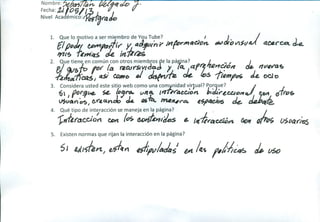 Nombre: Sebastian Delgado J.
Fecha: 21/06/13
Nivel Académico: Postgrado
1. Que lo motivo a ser miembro de You Tube?
El poder compartir y adquirir información audiovisual acerca de
mis temas de interés
2. Que tiene en común con otros miembros de la página?
El gusto por la recursividad y la aprehención de nuevas
temáticas, así como el disfrute de los tiempos de ocio
3. Considera usted este sitio web como una comunidad virtual? Porque?
Si, porque se logra una interacción bidireccional con otros
usuarios, creando de esta manera espacios de debate
4. Qué tipo de interacción se maneja en la página?
Interacción con los contenidos e interacción con otros usuarios
5. Existen normas que rijan la interacción en la página?
Si existen, están estipuladas en las políticas de uso